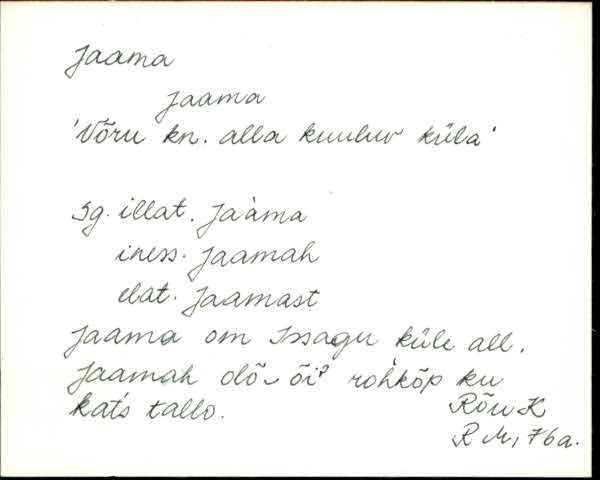 Jaama
Jaama
'Võru kn. alla kuuluv küla'
Sg. illat. Jaàma
iness. Jaamah
elat. Jaamast
Jaama om Issagu küle all.
Jaamah olõ õiʔ rohkõp ku
kat's tallo. Rõu K
R M, 76a.